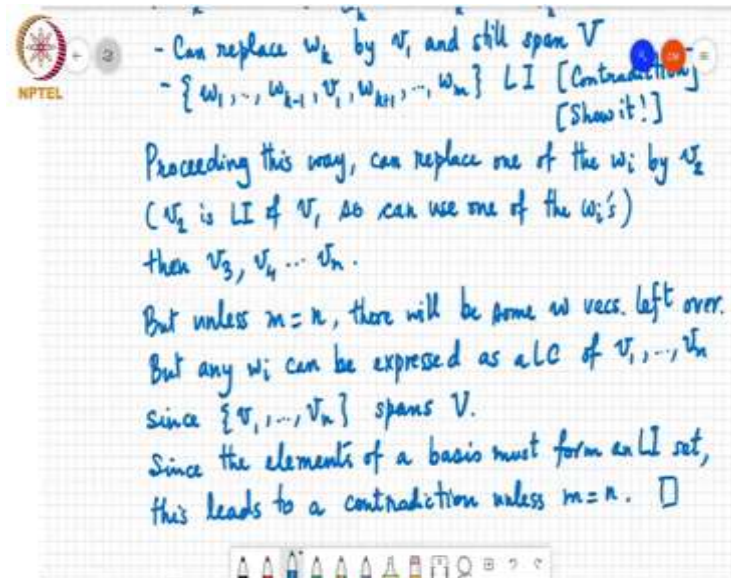 - Can replace wₖ by v₁ and still span V
- { w₁, .., wₖ₋₁, v₁, wₖ₊₁, .., wₘ } LI [Contradiction]
[Show it!]
NPTEL
Proceeding this way, can replace one of the wᵢ by v₂
(v₂ is LI of v₁ so can use one of the wᵢ's)
then v₃, v₄ ... vₙ.
But unless m = n, there will be some w vecs. left over.
But any wᵢ can be expressed as a LC of v₁, .., vₙ
since {v₁, .., vₙ} spans V.
Since the elements of a basis must form an LI set,
this leads to a contradiction unless m = n. □